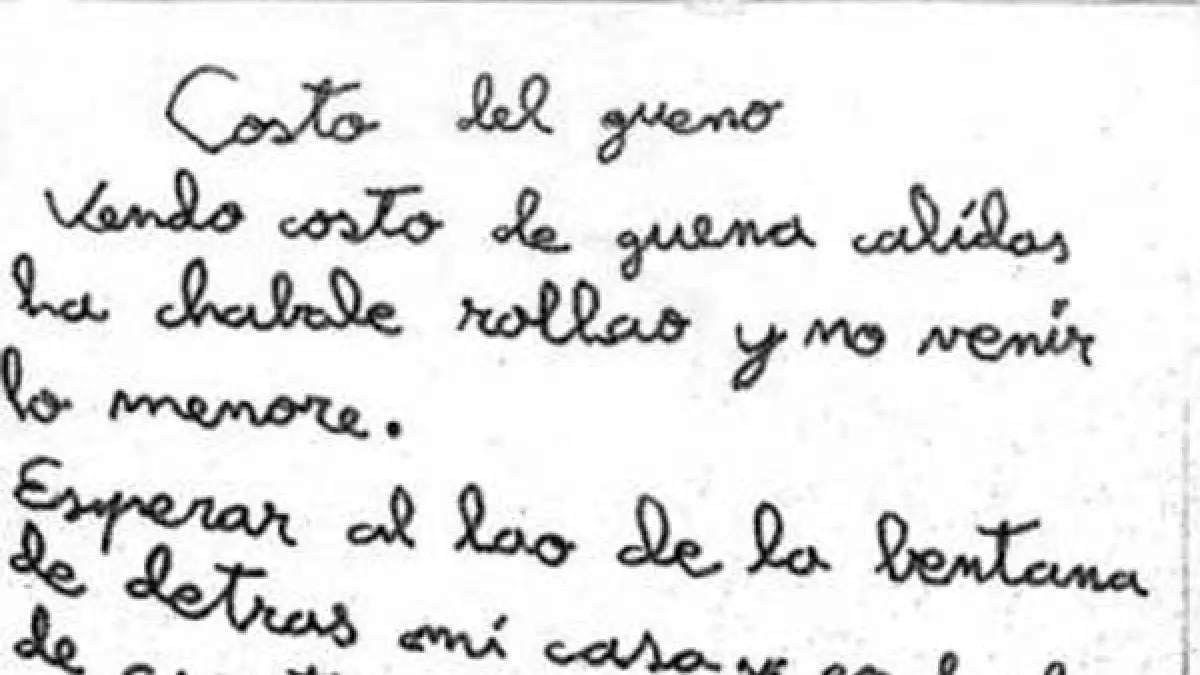 Costo del gueno
Vendo costo de guena calidas
ha chabale rollao y no venir
lo menore.
Esperar al lao de la bentana
de detras mi casa
de